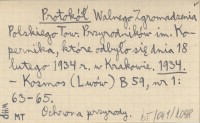 Protokół Walnego Zgromadzenia
Polskiego Tow. Przyrodników im. Ko-
pernika, które odbyło się dnia 18
lutego 1934 r. w Krakowie, 1934.
- Kosmos (Lwów) B 59, nr 1:
63-65.
Ochrona przyrody.
MT